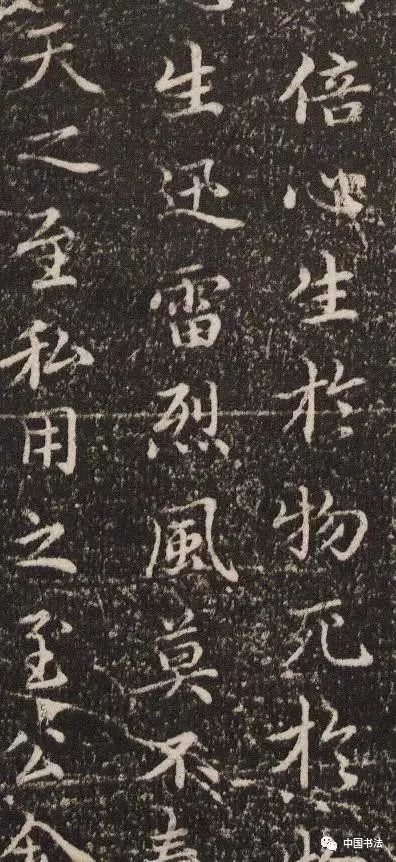 倍心生於物死於
生迅雷烈風莫不
天之至私用之至公
中国书法